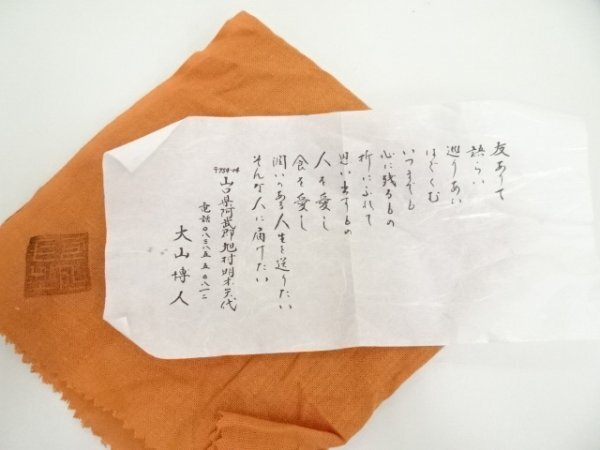 友ありて
語らい
巡りあい
はぐくむ
いつまでも
心に残るもの
折にふれて
思い出すもの
人を愛し
食を愛し
潤いのある人生を送りたい
そんな人に届けたい
山口県阿武郡旭村明木矢代
電話〇八三八五五〇八一二
大山博人